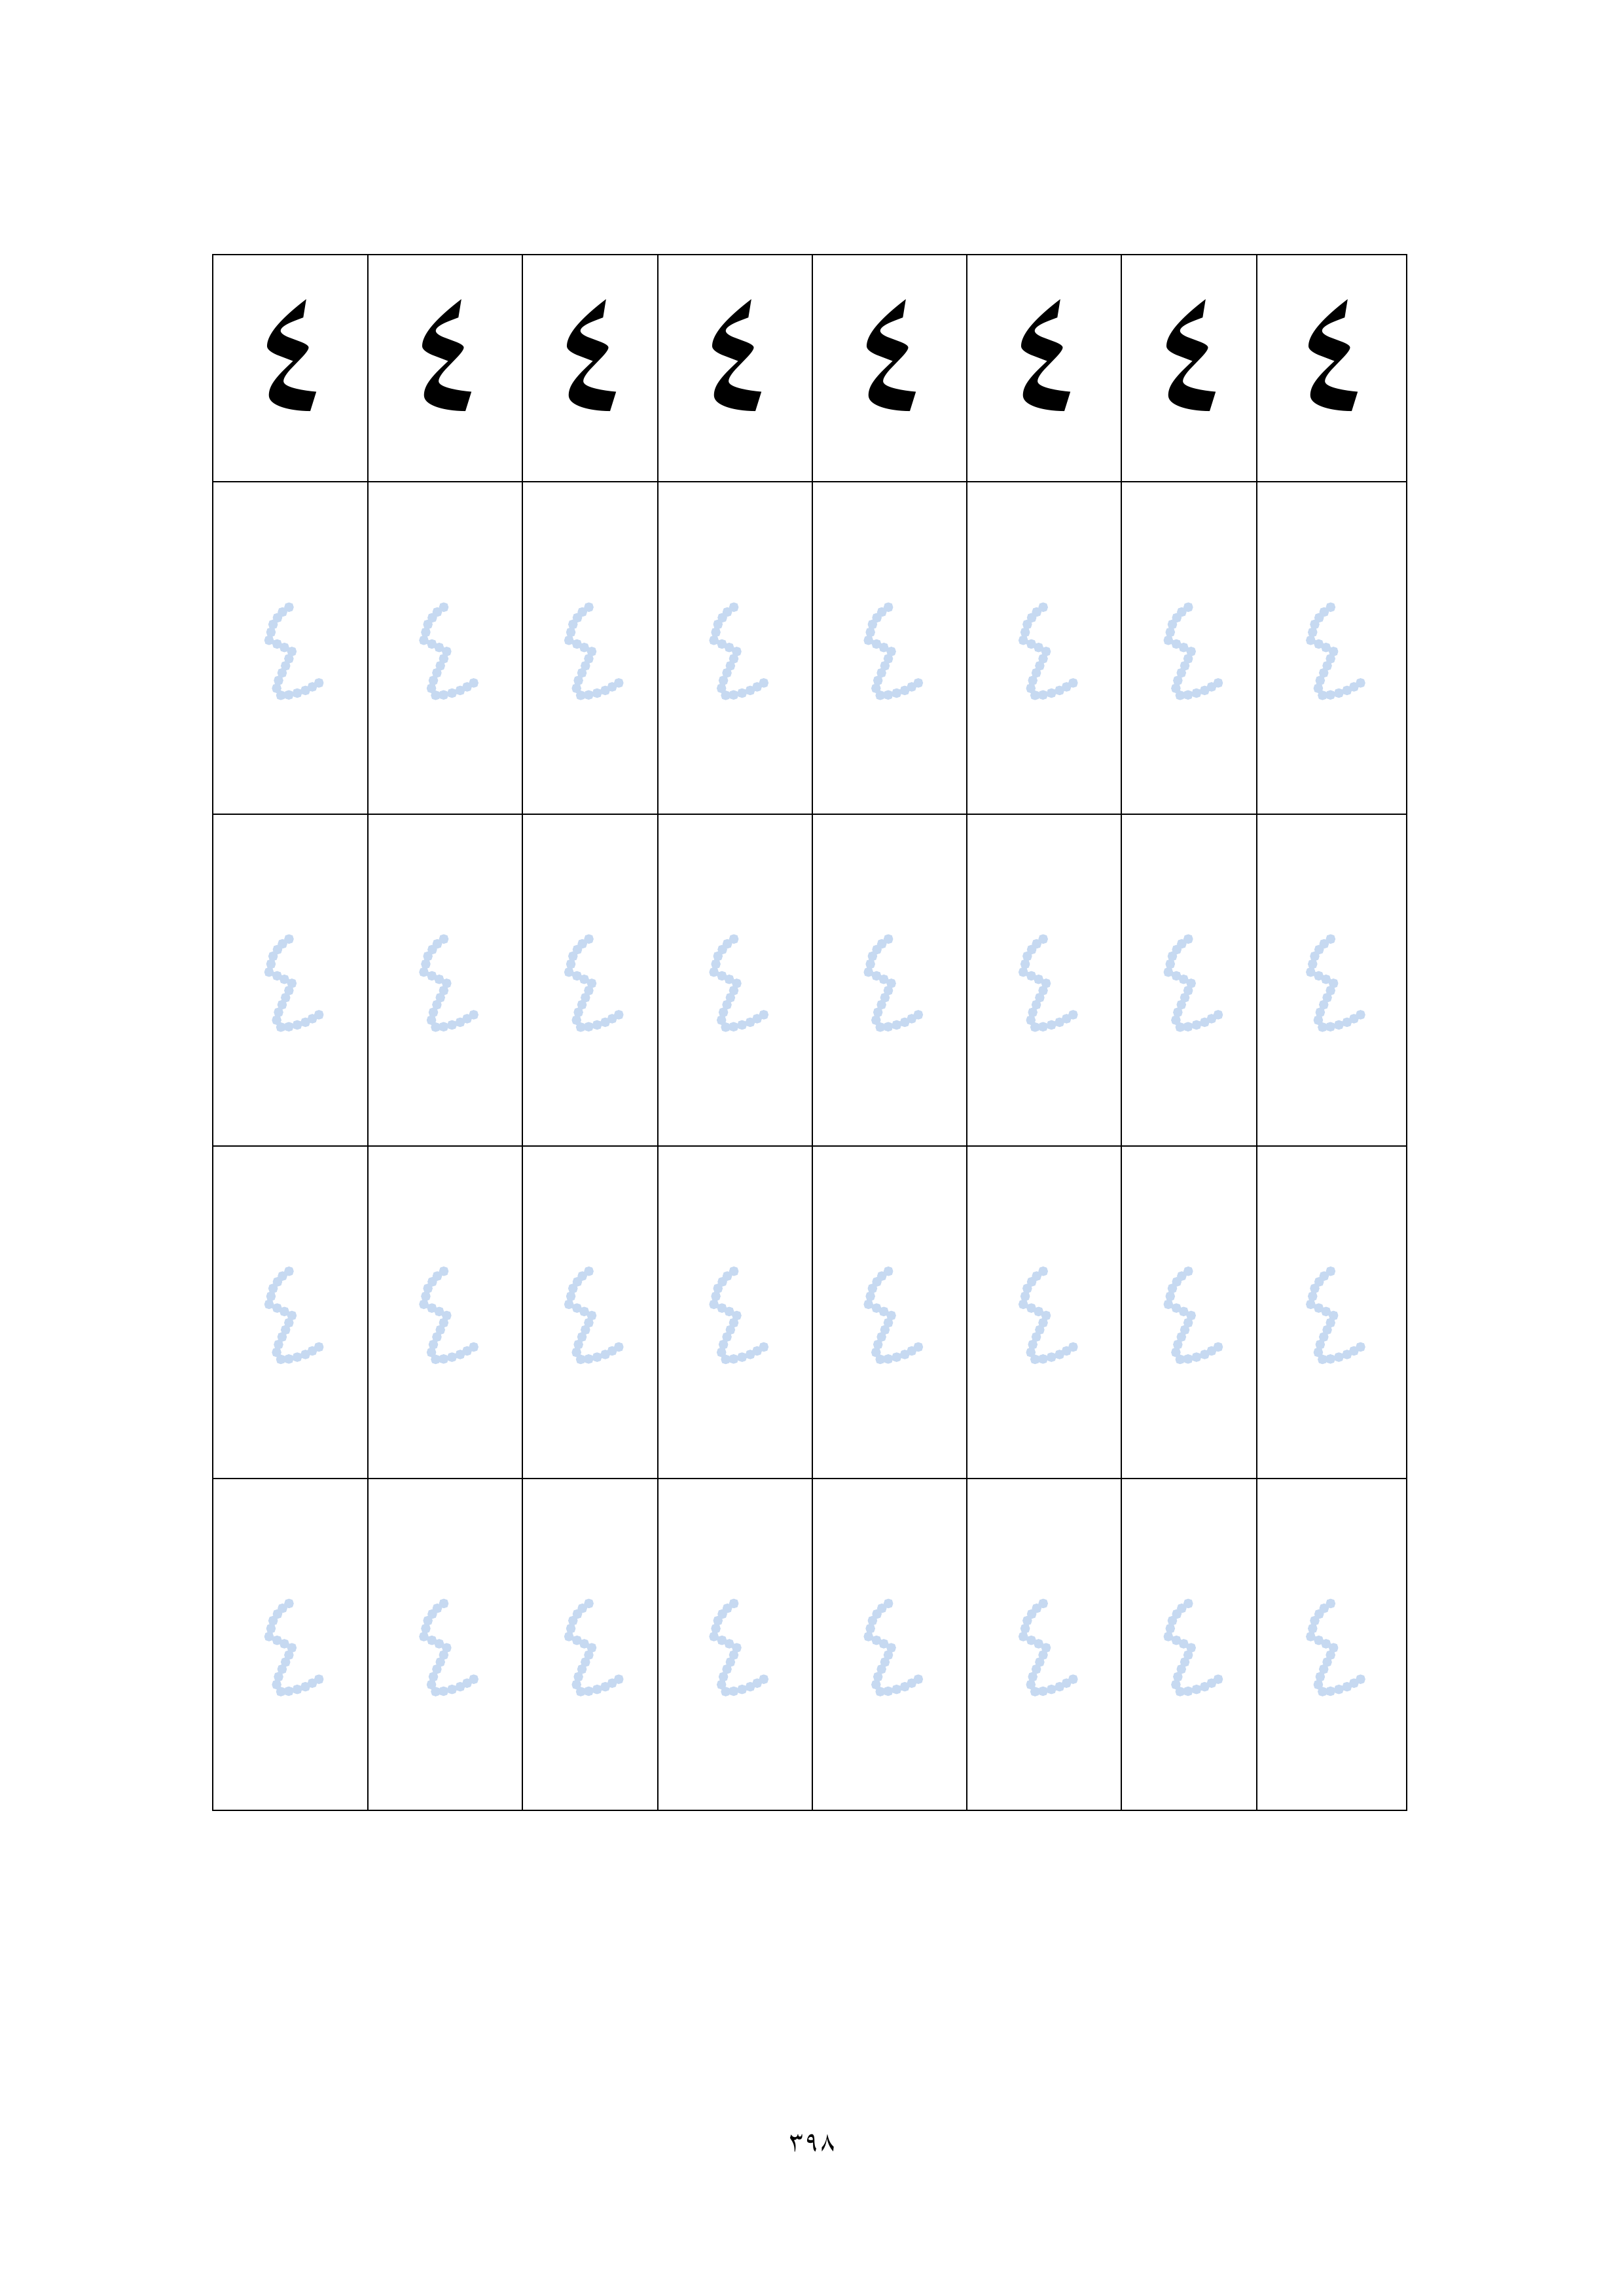 ٤ ٤ ٤ ٤ ٤ ٤ ٤ ٤
٤ ٤ ٤ ٤ ٤ ٤ ٤ ٤
٤ ٤ ٤ ٤ ٤ ٤ ٤ ٤
٤ ٤ ٤ ٤ ٤ ٤ ٤ ٤
٤ ٤ ٤ ٤ ٤ ٤ ٤ ٤
٣٩٨